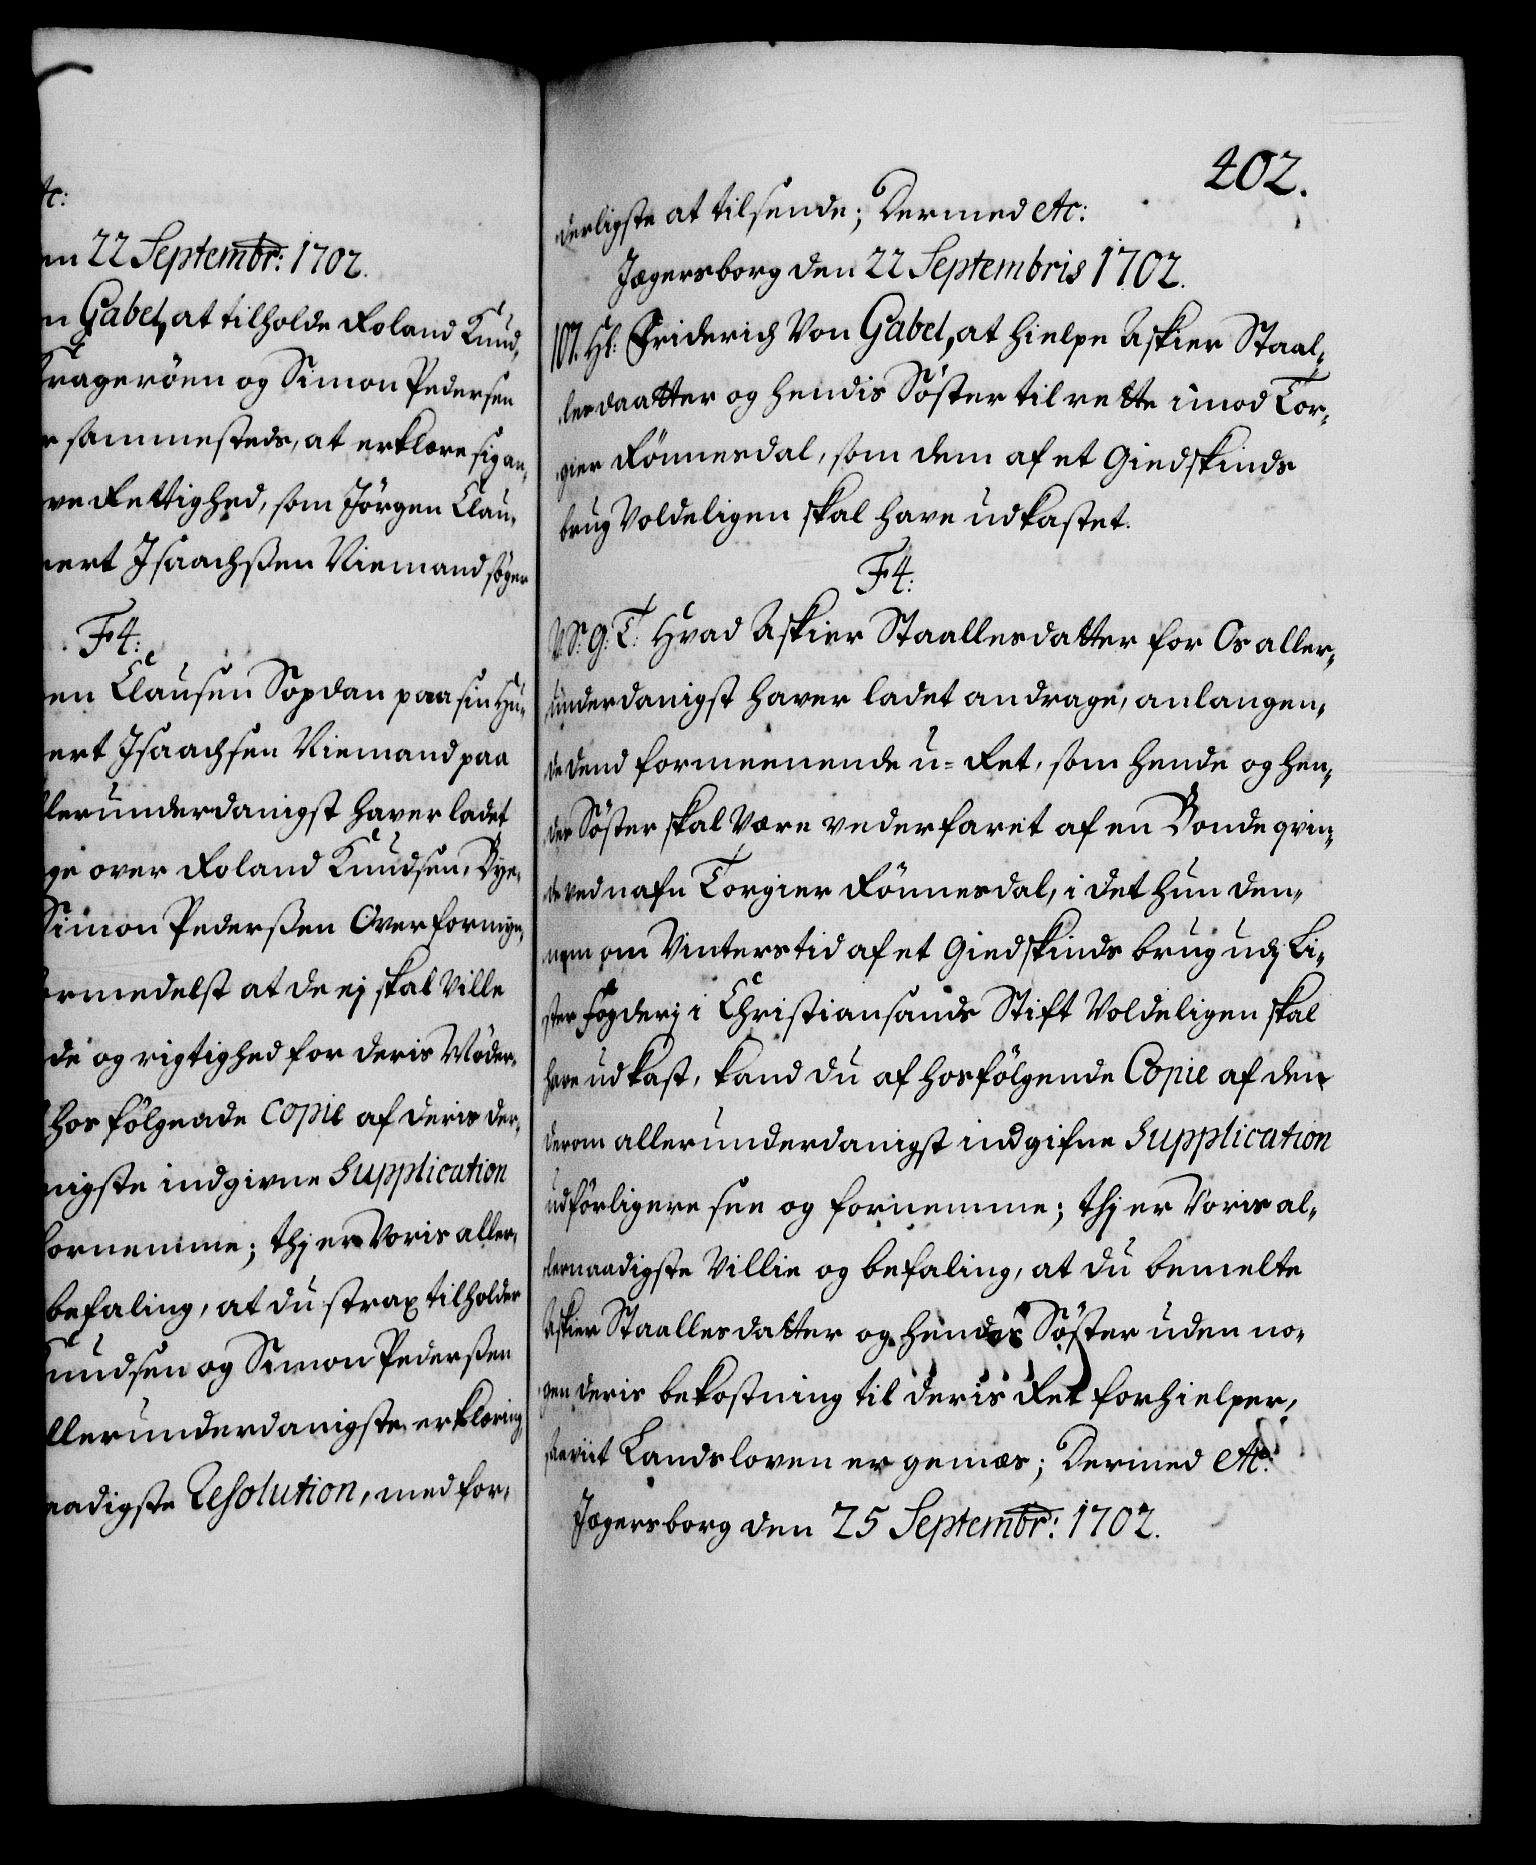 etc:
en 22 Septembr: 1702.
n Gabel, at tilholde Roland Knud-
Krageröen og Simon Pedersen
r sammesteds, at erklære sig an-
ve Rettighed, som Jörgen Clau-
nert Isaachsen Niemand söger
F4:
en Clausen Sopdan paa sin Hu-
ert Isaachsen Niemand paa
llerunderdanigst haver ladet
ge over Roland Knudsen, Bye-
Simon Pederssen Overformyn-
formedelst at de ej skal ville
de og rigtighed for deris Möder-
hosfölgende Copie af deris der-
nigste indgivne Supplication
fornemme; thj er Voris aller-
befaling, at du strax tilholder
Knudsen og Simon Pederssen
llerunderdanigste erklæring,
aadigste Resolution, med for-
402.
derligste at tilsende; Dermed etc:
Jægersborg den 22 Septembris 1702.
107. Hl: Friderich Von Gabel, at hielpe Askier Staal-
lesdaatter og hendis Söster til rette imod Tor-
gier Rönnesdal, som dem af et Giedskinds
brug Voldeligen skal have udkastet.
F4:
V. S. G. T. Hvad Askier Staallesdatter for Os aller-
underdanigst haver ladet andrage, anlangen-
de dend formeenende u-Ret, som hende og hen-
des Söster skal være vederfaret af en Bonde qvin-
de ved nafn Torgier Rönnesdal, i det hun den-
nem om Vinterstid af et Giedskinds brug udj Li-
ster Fogderj i Christiansands Stift Voldeligen skal
have udkast, kand du af hosfölgende Copie af den
derom allerunderdanigst indgifne Supplication
udförligere see og fornemme; thj er Voris al-
lernaadigste Villie og befaling, at du bemelte
Askier Staallesdatter og hendes Söster uden no-
gen deris bekostning til deris Ret forhielper,
saaviit Landsloven er gemæs; Dermed etc:
Jægersborg den 25 Septembr: 1702.